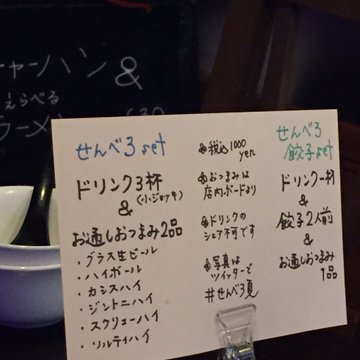 チャーハン &
えらべる
ラーメン
せんべろset
ドリンク3杯
(小ジョッキ)
&
お通しおつまみ2品
・グラス生ビール
・ハイボール
・カシスハイ
・ジントニハイ
・スクリューハイ
・ソルティハイ
税込1000
yen
おつまみは
店内ボードより
ドリンクの
シェア不可です
写真は
ツイッターで
#せんべろ夏
せんべろ
餃子set
ドリンク一杯
&
餃子2人前
&
お通しおつまみ
1品